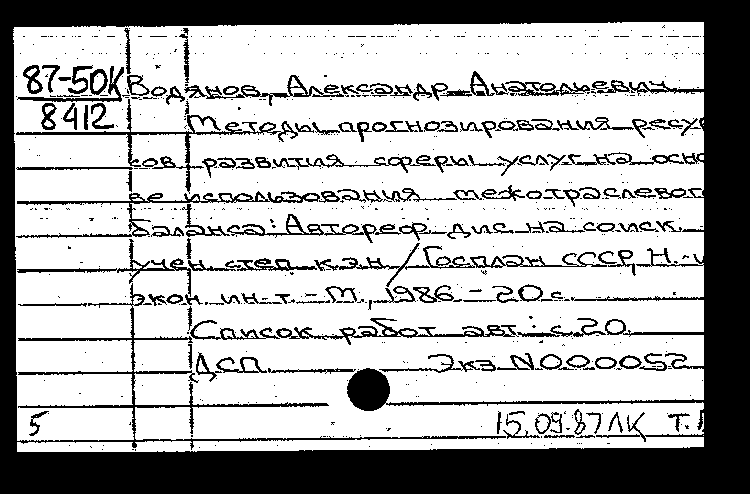 87-50К Водянов, Александр Анатольевич
8412 Методы прогнозирования ресур
сов развития сферы услуг на осно
ве использования межотраслевого
баланса: Автореф. дис. на соиск.
учен. степ. к.э.н. / Госплан СССР, Н.-и
экон. ин-т. - М., 1986 - 20 с.
Список работ авт.: с. 20
ДСП. Экз N000052
5 15.09.87 ЛК Т.